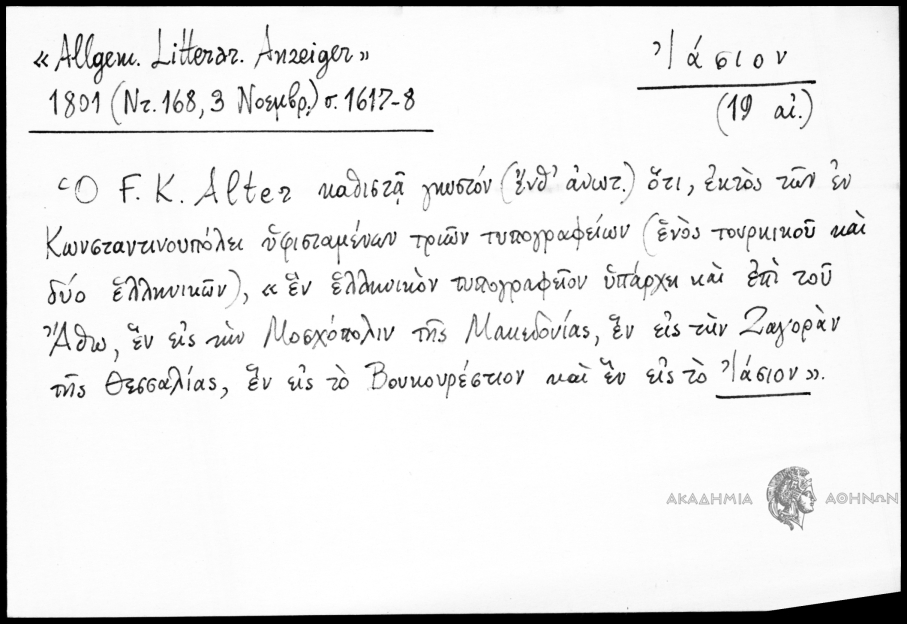 « Allgem. Litterar. Anzeiger »
1801 (Nr. 168, 3 Νοεμβρ.) σ. 1617-8
Ἰάσιον
(19 αἰ.)
Ὁ F. K. Alter καθιστᾷ γνωστόν (ἔνθ' ἀνωτ.) ὅτι, ἐκτὸς τῶν ἐν
Κωνσταντινουπόλει ὑφισταμένων τριῶν τυπογραφείων (ἑνὸς τουρκικοῦ καὶ
δύο ἑλληνικῶν), « ἓν ἑλληνικὸν τυπογραφεῖον ὑπάρχει καὶ ἐπὶ τοῦ
Ἄθω, ἓν εἰς τὴν Μοσχόπολιν τῆς Μακεδονίας, ἓν εἰς τὴν Ζαγορὰν
τῆς Θεσσαλίας, ἓν εἰς τὸ Βουκουρέστιον καὶ ἓν εἰς τὸ Ἰάσιον».
ΑΚΑΔΗΜΙΑ ΑΘΗΝΩΝ